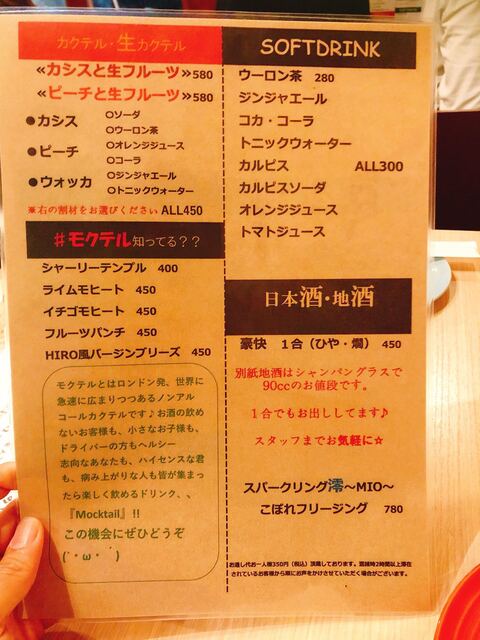 カクテル・生カクテル
≪カシスと生フルーツ≫580
≪ピーチと生フルーツ≫580
●カシス
●ピーチ
●ウォッカ
○ソーダ
○ウーロン茶
○オレンジジュース
○コーラ
○ジンジャエール
○トニックウォーター
※右の割材をお選びください ALL450
#モクテル知ってる？？
シャーリーテンプル 400
ライムモヒート 450
イチゴモヒート 450
フルーツパンチ 450
HIRO風バージンブリーズ 450
モクテルとはロンドン発、世界に
急速に広まりつつあるノンアル
コールカクテルです♪お酒の飲め
ないお客様も、小さなお子様も、
ドライバーの方もヘルシー
志向なあなたも、ハイセンスな君
も、病み上がりな人も皆が集まっ
たら楽しく飲めるドリンク、、
『Mocktail』!!
この機会にぜひどうぞ
(´・ω・｀)
SOFTDRINK
ウーロン茶 280
ジンジャエール
コカ・コーラ
トニックウォーター
カルピス ALL300
カルピスソーダ
オレンジジュース
トマトジュース
日本酒・地酒
豪快 1合（ひや・燗） 450
別紙地酒はシャンパングラスで
90ccのお値段です。
1合でもお出ししてます♪
スタッフまでお気軽に☆
スパークリング澪～MIO～
こぼれフリージング 780
お通し代お一人様350円（税込）頂戴しております。混雑時2時間以上滞在
されているお客様から順にお声をかけさせていただく場合がございます。